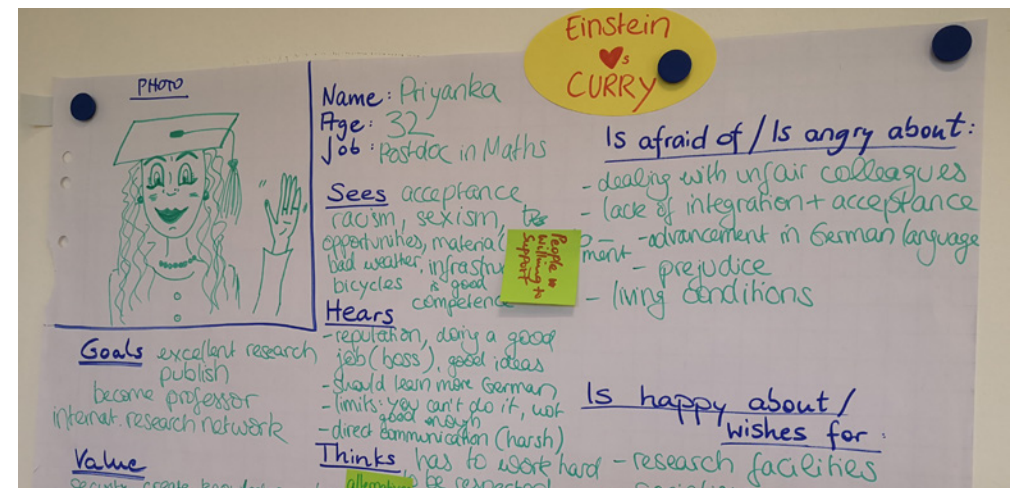 Einstein
♥s
CURRY
PHOTO
Name: Priyanka
Age: 32
Job: Postdoc in Maths
Sees acceptance,
racism, sexism,
opportunities, material
bad weather, infrastru
bicycles is good
competence
People
willing to
support
Hears
- reputation, doing a good
job (boss), good ideas
- should learn more German
- limits: you can't do it, not
good enough
- direct communication (harsh)
Thinks, has to work hard
to be respected
Goals excellent research
publish
become professor
internat. research network
Value
security, create
Is afraid of / Is angry about:
- dealing with unfair colleagues
- lack of integration + acceptance
- advancement in German language
- prejudice
- living conditions
Is happy about /
wishes for:
- research facilities